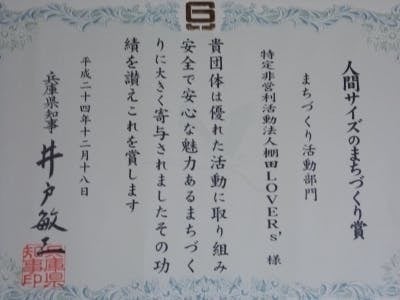 人間サイズのまちづくり賞
まちづくり活動部門
特定非営利活動法人棚田LOVER's 様
貴団体は優れた活動に取り組み
安全で安心な魅力あるまちづく
りに大きく寄与されましたその功
績を讃えこれを賞します
平成二十四年十二月十八日
兵庫県知事 井戸敏三
兵庫県
知事印